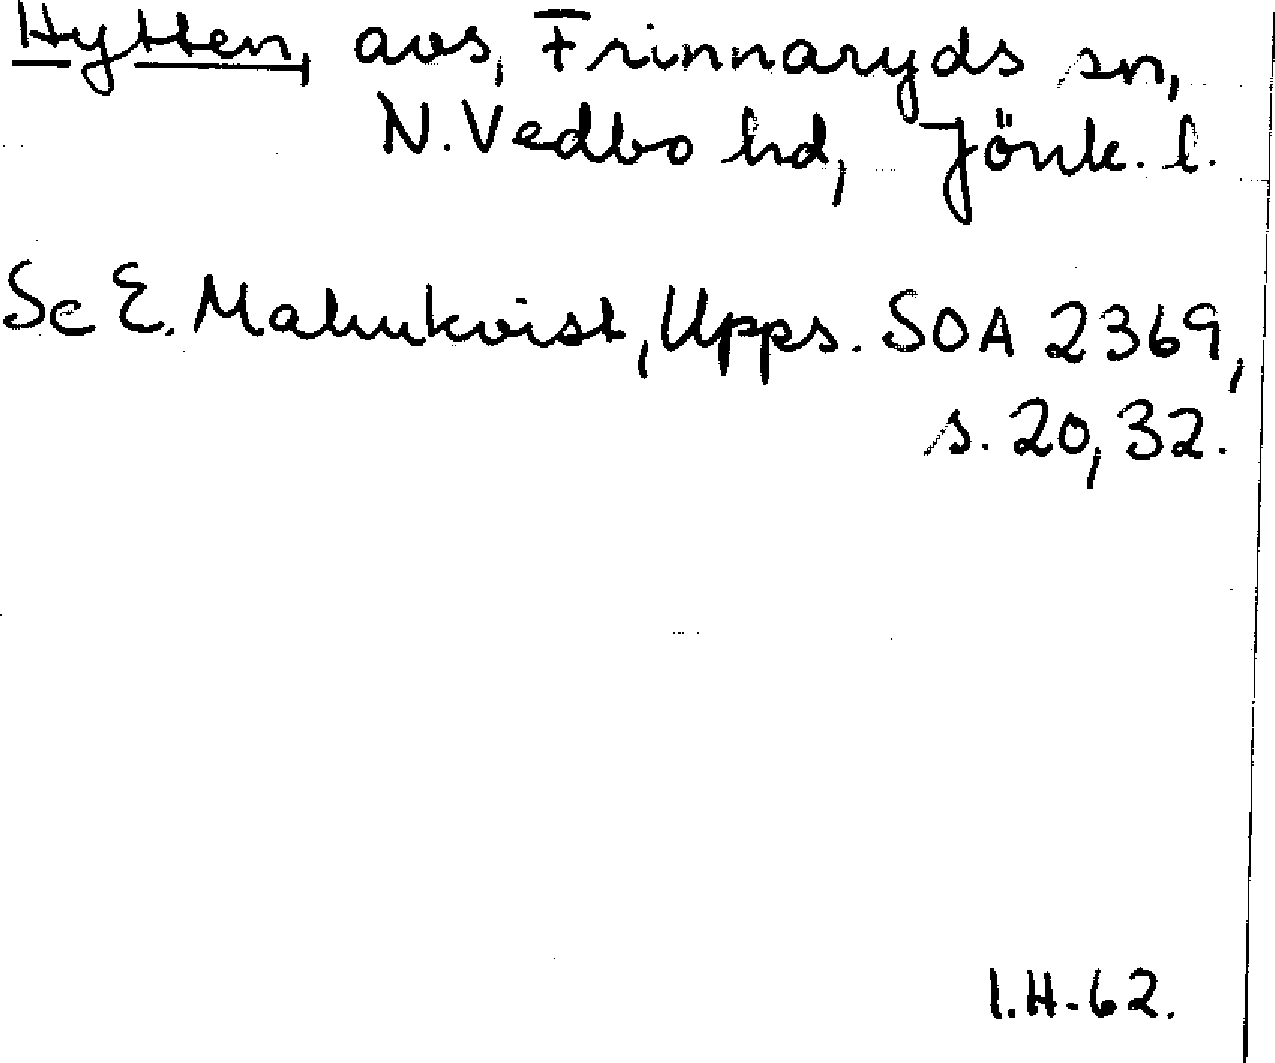 Hytten, avs, Frinnaryds sn,
N. Vedbo hd, Jönk. l.
Se E. Malmkvist, Upps. SOA 2369,
s. 20, 32.
I.H-62.